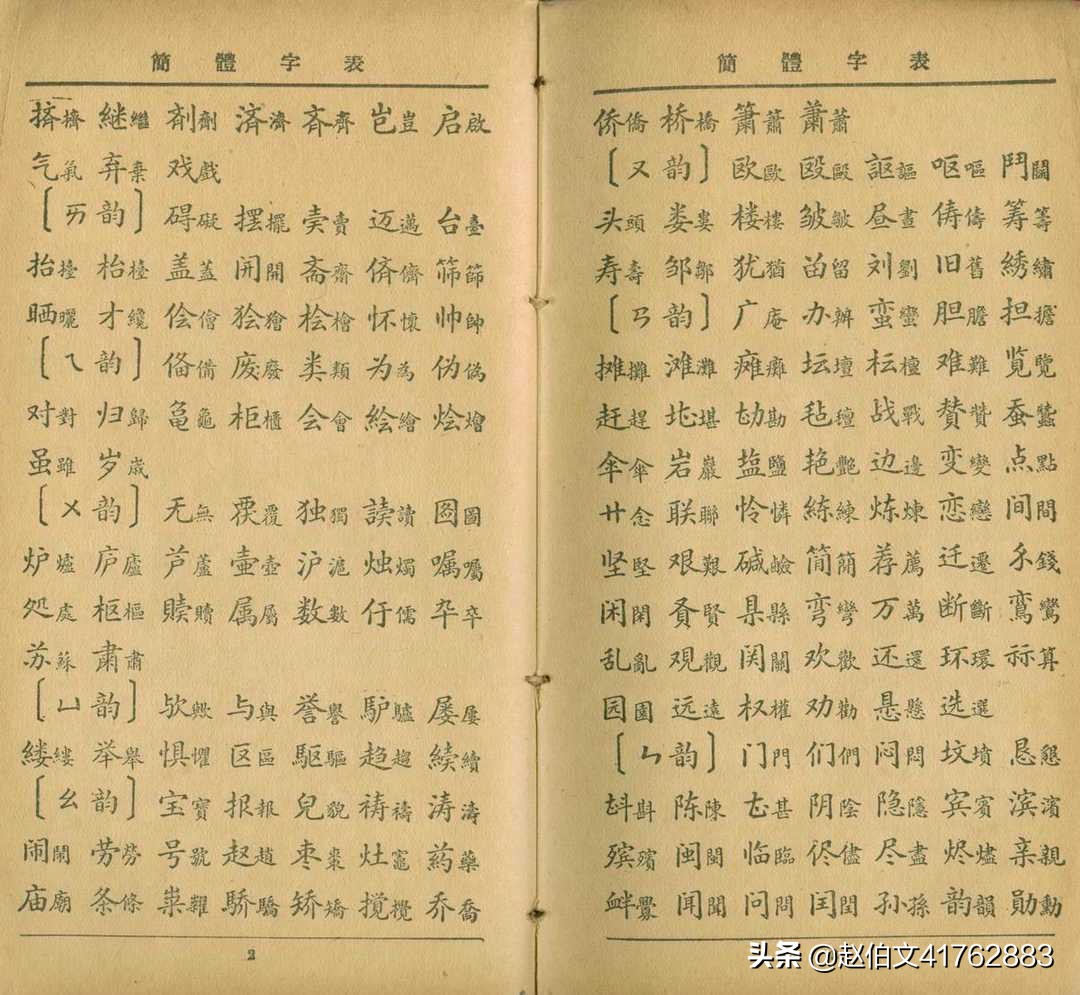 簡體字表
挤擠 継繼 剤劑 済濟 斉齊 岂豈 启啟
气氣 弃棄 戏戲
〔ㄞ韵〕 碍礙 摆擺 卖賣 迈邁 台臺
抬擡 枱檯 盖蓋 开開 斋齋 侪儕 筛篩
晒曬 才纔 侩儈 狯獪 桧檜 怀懷 帅帥
〔ㄟ韵〕 俻備 废廢 类類 为為 伪偽
对對 归歸 亀龜 柜櫃 会會 絵繪 烩燴
虽雖 岁歲
〔ㄨ韵〕 无無 覆 独獨 読讀 图圖
炉爐 庐廬 芦蘆 壷壺 沪滬 烛燭 嘱囑
处處 枢樞 赎贖 属屬 数數 仔儒 卆卒
苏蘇 肃肅
〔ㄩ韵〕 欤歟 与與 誉譽 馿驢 屡屢
縷縷 举舉 惧懼 区區 駆驅 趋趨 続續
〔ㄠ韵〕 宝寶 报報 皃貌 祷禱 涛濤
闹鬧 劳勞 号號 赵趙 枣棗 灶竈 药藥
庙廟 条條 粜糶 骄驕 矫矯 搅攪 乔喬
2
簡體字表
侨僑 桥橋 箫簫 萧蕭
〔ㄡ韵〕 欧歐 殴毆 謳謳 呕嘔 鬥鬭
头頭 娄婁 楼樓 皱皺 昼晝 俦儔 筹籌
寿壽 邹鄒 犹猶 畄留 刘劉 旧舊 綉繡
〔ㄢ韵〕 广庵 办辦 蛮蠻 胆膽 担擔
摊攤 滩灘 瘫癱 坛壇 枟檀 难難 覧覽
赶趕 堪 勘 毡氈 战戰 賛贊 蚕蠶
伞傘 岩巖 塩鹽 艳艷 边邊 变變 点點
廿念 联聯 怜憐 練練 炼煉 恋戀 间間
坚堅 艰艱 碱鹼 简簡 荐薦 迁遷 錢
闲閑 賢 县縣 弯彎 万萬 断斷 鸾鸞
乱亂 观觀 関關 欢歡 还還 环環 祘算
园園 远遠 权權 劝勸 悬懸 选選
〔ㄣ韵〕 门門 们們 闷悶 坟墳 恳懇
斟 陈陳 甚 阴陰 隐隱 宾賓 滨濱
殡殯 闽閩 临臨 侭儘 尽盡 烬燼 亲親
衅釁 闻聞 问問 闰閏 孙孫 韵韻 勋勳
头条 @赵伯文41762883